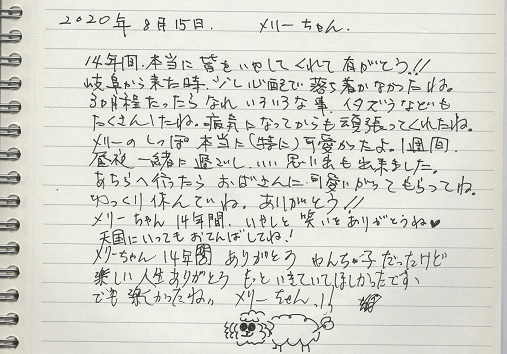 2020年 8月15日. メリーちゃん.
14年間.本当に皆をいやしてくれて有がとう!!
岐阜から来た時.少し心配で落ち着かなかったね。
3ヶ月程たったらなれいろいろな事.イタズラなども
たくさんしたね。病気になってからも頑張ってくれたね。
メリーのしっぽ本当に(特に)可愛かったよ。1週間.
昼夜一緒に過ごし.いい思い出も出来ました。
あちらへ行ったらおばさんに.可愛いがってもらってね。
ゆっくり休んでいね。ありがとう!!
メリーちゃん14年間.いやしと笑いをありがとうね♥
天国にいってもおてんばしてね!
メリーちゃん14年間ありがとう やんちゃ子だったけど
楽しい人生ありがとう もっといきていてほしかったです、
でも楽しかったね。 メリーちゃん!!